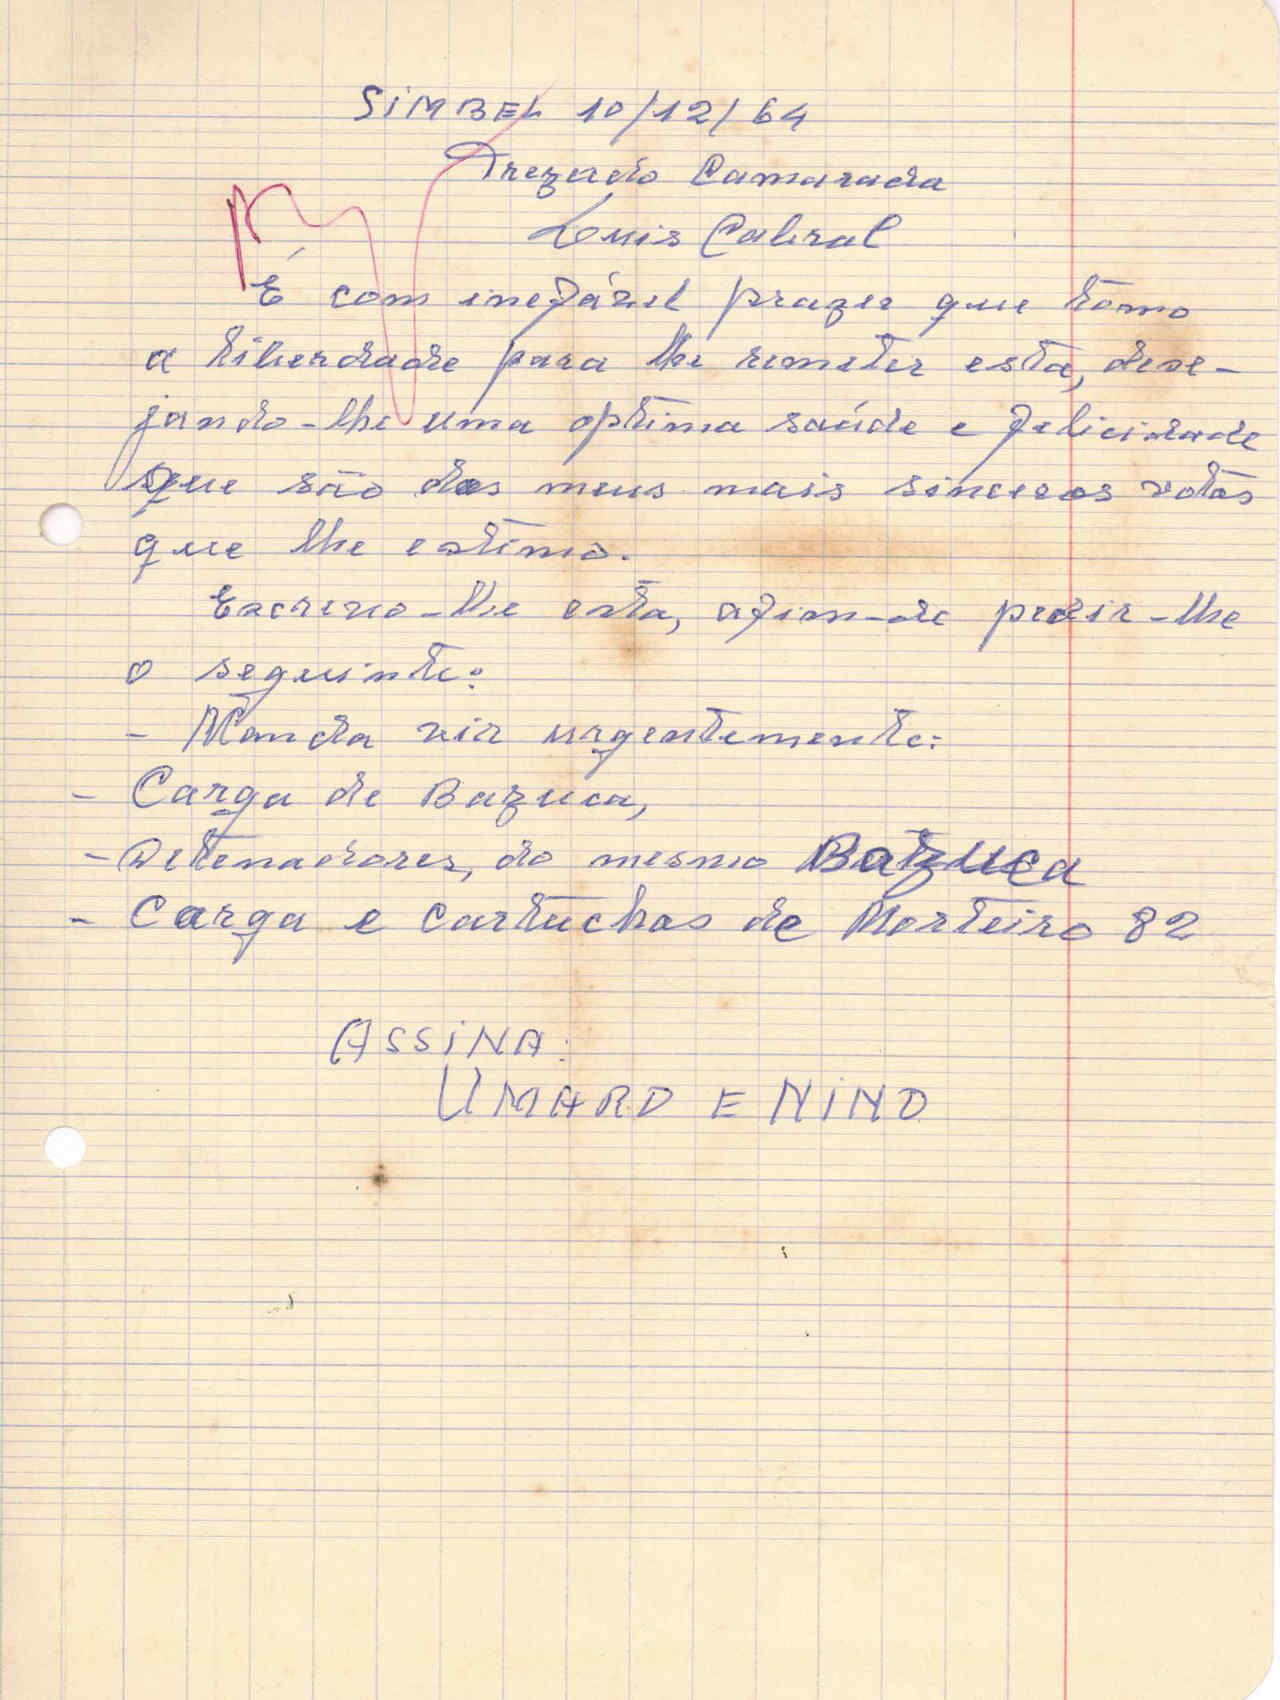 SIMBEL 10/12/64
Prezado Camarada
Luis Cabral
É com inefável prazer que tômo
a liberdade para lhe remeter esta, dese-
jando-lhe uma optima saúde e felicidade
que são dos meus mais sinceros votos
que lhe estimo.
Escrevo-lhe esta, afim-de pedir-lhe
o seguinte:
- Manda vir urgentemente:
- Carga de Bazuca,
- Detenadores, do mesmo Bazuca
- Carga e cartuchos de Morteiro 82
ASSINA:
UMARO E NINO